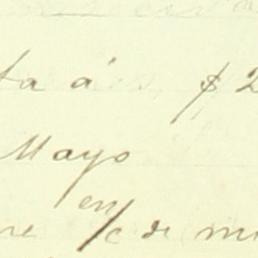 ta á $ 2
Mayo
en
re % de mi